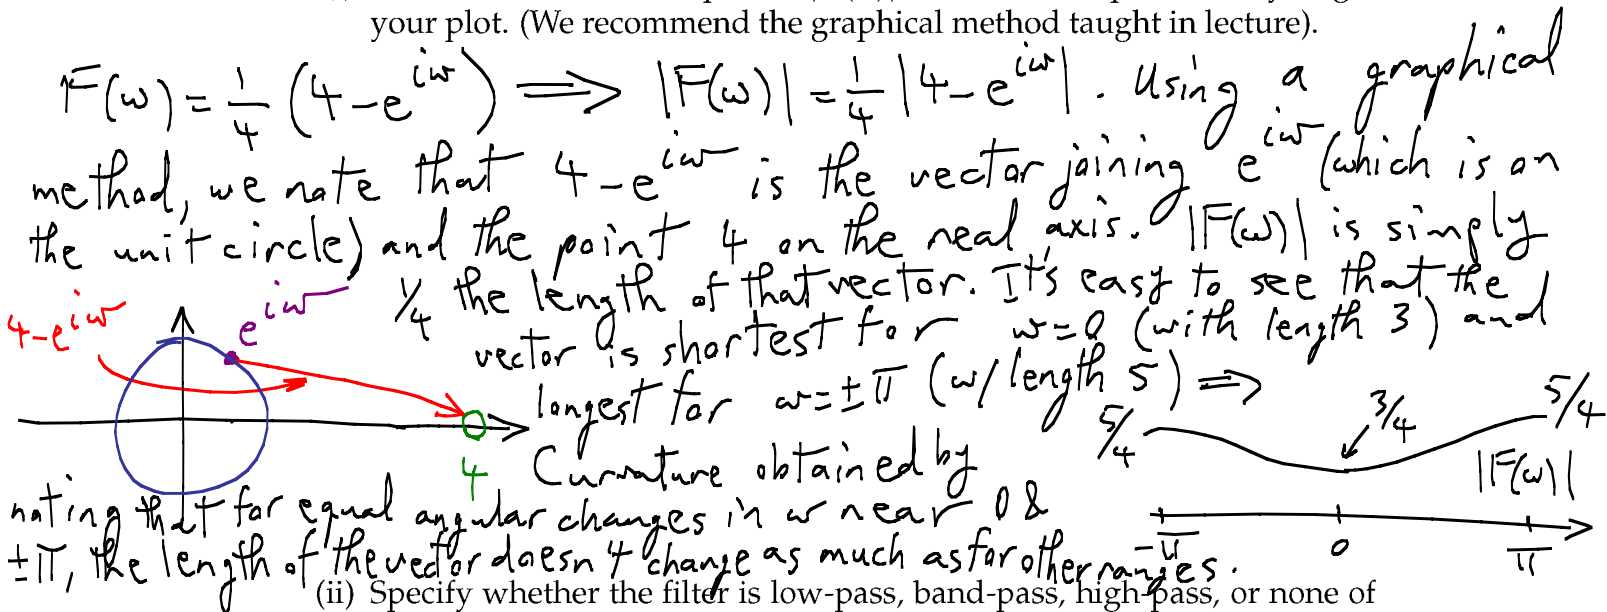 your plot. (We recommend the graphical method taught in lecture).
F(ω) = 1/4 (4 - e^{iω}) ⟹ |F(ω)| = 1/4 |4 - e^{iω}|. Using a graphical
method, we note that 4 - e^{iω} is the vector joining e^{iω} (which is on
the unit circle) and the point 4 on the real axis. |F(ω)| is simply
1/4 the length of that vector. It's easy to see that the
vector is shortest for ω = 0 (with length 3) and
longest for ω = ±π (w/ length 5) ⟹
4 - e^{iω}
e^{iω}
4
Curvature obtained by
noting that for equal angular changes in ω near 0 &
±π, the length of the vector doesn't change as much as for other ranges.
5/4
3/4
5/4
|F(ω)|
-π
0
π
(ii) Specify whether the filter is low-pass, band-pass, high-pass, or none of